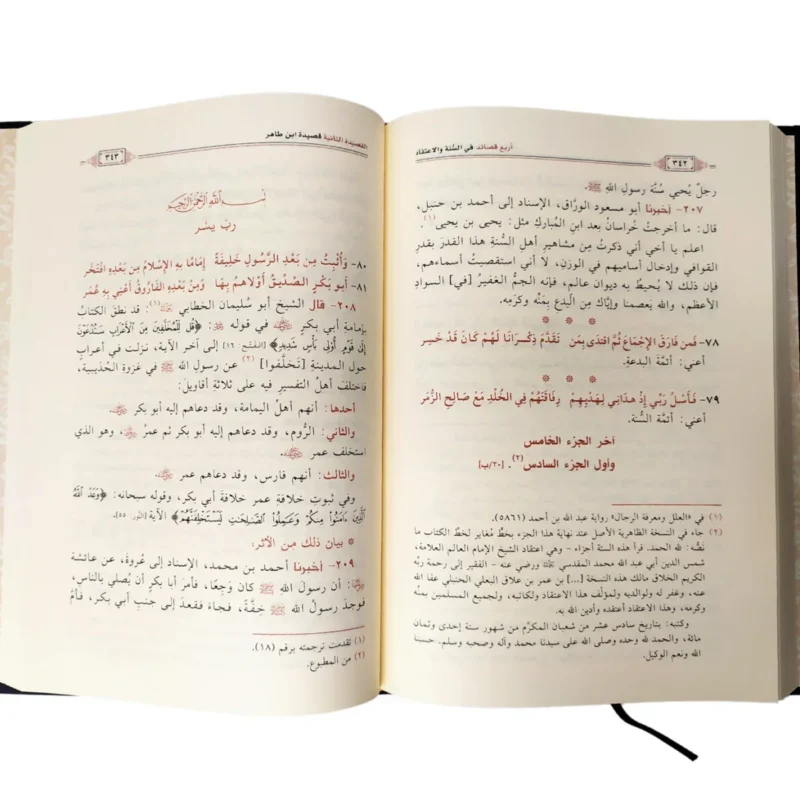 أربع قصائد في السُّنة والاعتقاد
٣٤٢
رجلٌ يُحيي سُنَّة رسولِ اللهِ ﷺ.
٢٠٧- أخبرنا أبو مسعود الورَّاق، الإسناد إلى أحمد بن حنبل،
قال: ما أخرجتْ خُراسانُ بعد ابنِ المُباركِ مثل: يحيى بن يحيى(١).
اعلم يا أخي أني ذكرتُ مِن مشاهيرِ أهلِ السُّنةِ هذا القدرَ بقدرِ
القوافي وإدخال أساميهم في الوزنِ، لا أني استقصيتُ أسماءهم،
فإن ذلك لا يُحيطُ به ديوان عالم، فإنه الجمُّ الغفيرُ [في] السوادِ
الأعظم، والله يعصمنا وإيَّاك مِن البِدعِ بِمنِّه وكرمِه.
* * *
٧٨- فَمن فارَقَ الإجْمَاعَ ثُمَّ اقتدَى بِمَن تَقَدَّمَ ذِكْرَانَا لَهُم كَانَ قَد خَسِر
أعني: أئمَّة البدعة.
* * *
٧٩- فَأَسْلُ رَبِّي إذْ هدَاني لِهَدْيِهِمْ رِفَاقَتَهُمْ فِي الخُلْدِ مَعَ صَالِحِ الزُّمَر
أعني: أئمَّة السُّنة.
آخر الجزء الخامس
وأول الجزء السادس(٢). [٣٠/ب]
(١) في «العلل ومعرفة الرجال» رواية عبد الله بن أحمد (٥٨٦١).
(٢) جاء في النسخة الظاهرية الأصل عند نهاية هذا الجزء بخطٍّ مُغاير لخط الكتاب ما
نصُّه: لله الحمد. قرأ هذه الستة أجزاء - وهي اعتقاد الشيخ الإمام العالم العلامة،
شمس الدين أبي عبد الله محمد المقدسي ورضي عنه - الفقير إلى رحمة ربِّه
الكريم الخلاق مالك هذه النسخة [...] بن عمر بن علاق البعلي الحنبلي عفا الله
عنه، وغفر له ولوالديه ولمؤلف هذا الاعتقاد ولكاتبه، ولجميع المسلمين بمنِّه
وكرمه، وهذا الاعتقاد أعتقده وأدين الله به.
وكتبه: بتاريخ سادس عشر من شعبان المكرَّم من شهور سنة إحدى وثمان
مائة، والحمد لله وحده وصلى الله على سيدنا محمد وآله وصحبه وسلم، حسبنا
الله ونعم الوكيل.
القصيدة الثانية قصيدة ابن طاهر
٣٤٣
بسم الله الرحمن الرحيم
ربِّ يسِّر
٨٠- وَأُثْبِتُ مِن بَعْدِ الرَّسُولِ خَلِيفَةً إِمَامًا بِهِ الإِسْلَامُ مِن بَعْدِهِ افْتَخَرْ
٨١- أَبو بَكْرٍ الصِّدِّيقُ أَوْلَاهُمُ بِهَا وَمِنْ بَعْدِهِ الفَارُوقُ أَعْنِي بِهِ عُمَر
٢٠٨- قال الشيخ أبو سُليمان الخطابي (١): قد نطقَ الكتابُ
بإمامةِ أبي بكرٍ في قولِه: ﴿قُل لِّلْمُخَلَّفِينَ مِنَ ٱلْأَعْرَابِ سَتُدْعَوْنَ
إِلَىٰ قَوْمٍ أُوْلِى بَأْسٍ شَدِيدٍ﴾ [الفتح: ١٦] إلى آخر الآية، نزلت في أعرابِ
حول المدينةِ [تَخلَّفوا](٢) عن رسول الله ﷺ في غزوة الحُديبية،
فاختلف أهلُ التفسير فيه على ثلاثةِ أقاويلَ:
أحدها: أنهم أهل اليمامة، وقد دعاهم إليه أبو بكر.
والثاني: الرُّوم، وقد دعاهم إليه أبو بكر ثم عمرُ، وهو الذي
استخلف عمر.
والثالث: أنهم فارس، وقد دعاهم عمر.
وفي ثبوتِ خلافةِ عمر خلافةَ أبي بكر، وقوله سبحانه: ﴿وَعَدَ ٱللَّهُ
ٱلَّذِينَ ءَامَنُوا۟ مِنكُمْ وَعَمِلُوا۟ ٱلصَّٰلِحَٰتِ لَيَسْتَخْلِفَنَّهُمْ﴾ الآية [النور: ٥٥].
* بيان ذلك من الأثر:
٢٠٩- أخبرنا أحمد بن محمد، الإسناد إلى عُروةَ، عن عائشة
: أن رسول الله ﷺ كان وَجِعًا، فأمرَ أبا بكرٍ أن يُصلي بالناسِ،
فوجدَ رسولُ الله ﷺ خِفَّةً، فجاءَ فقعدَ إلى جنبِ أبي بكر، فأمَّ
(١) تقدمت ترجمته برقم (١٨).
(٢) من المطبوع.